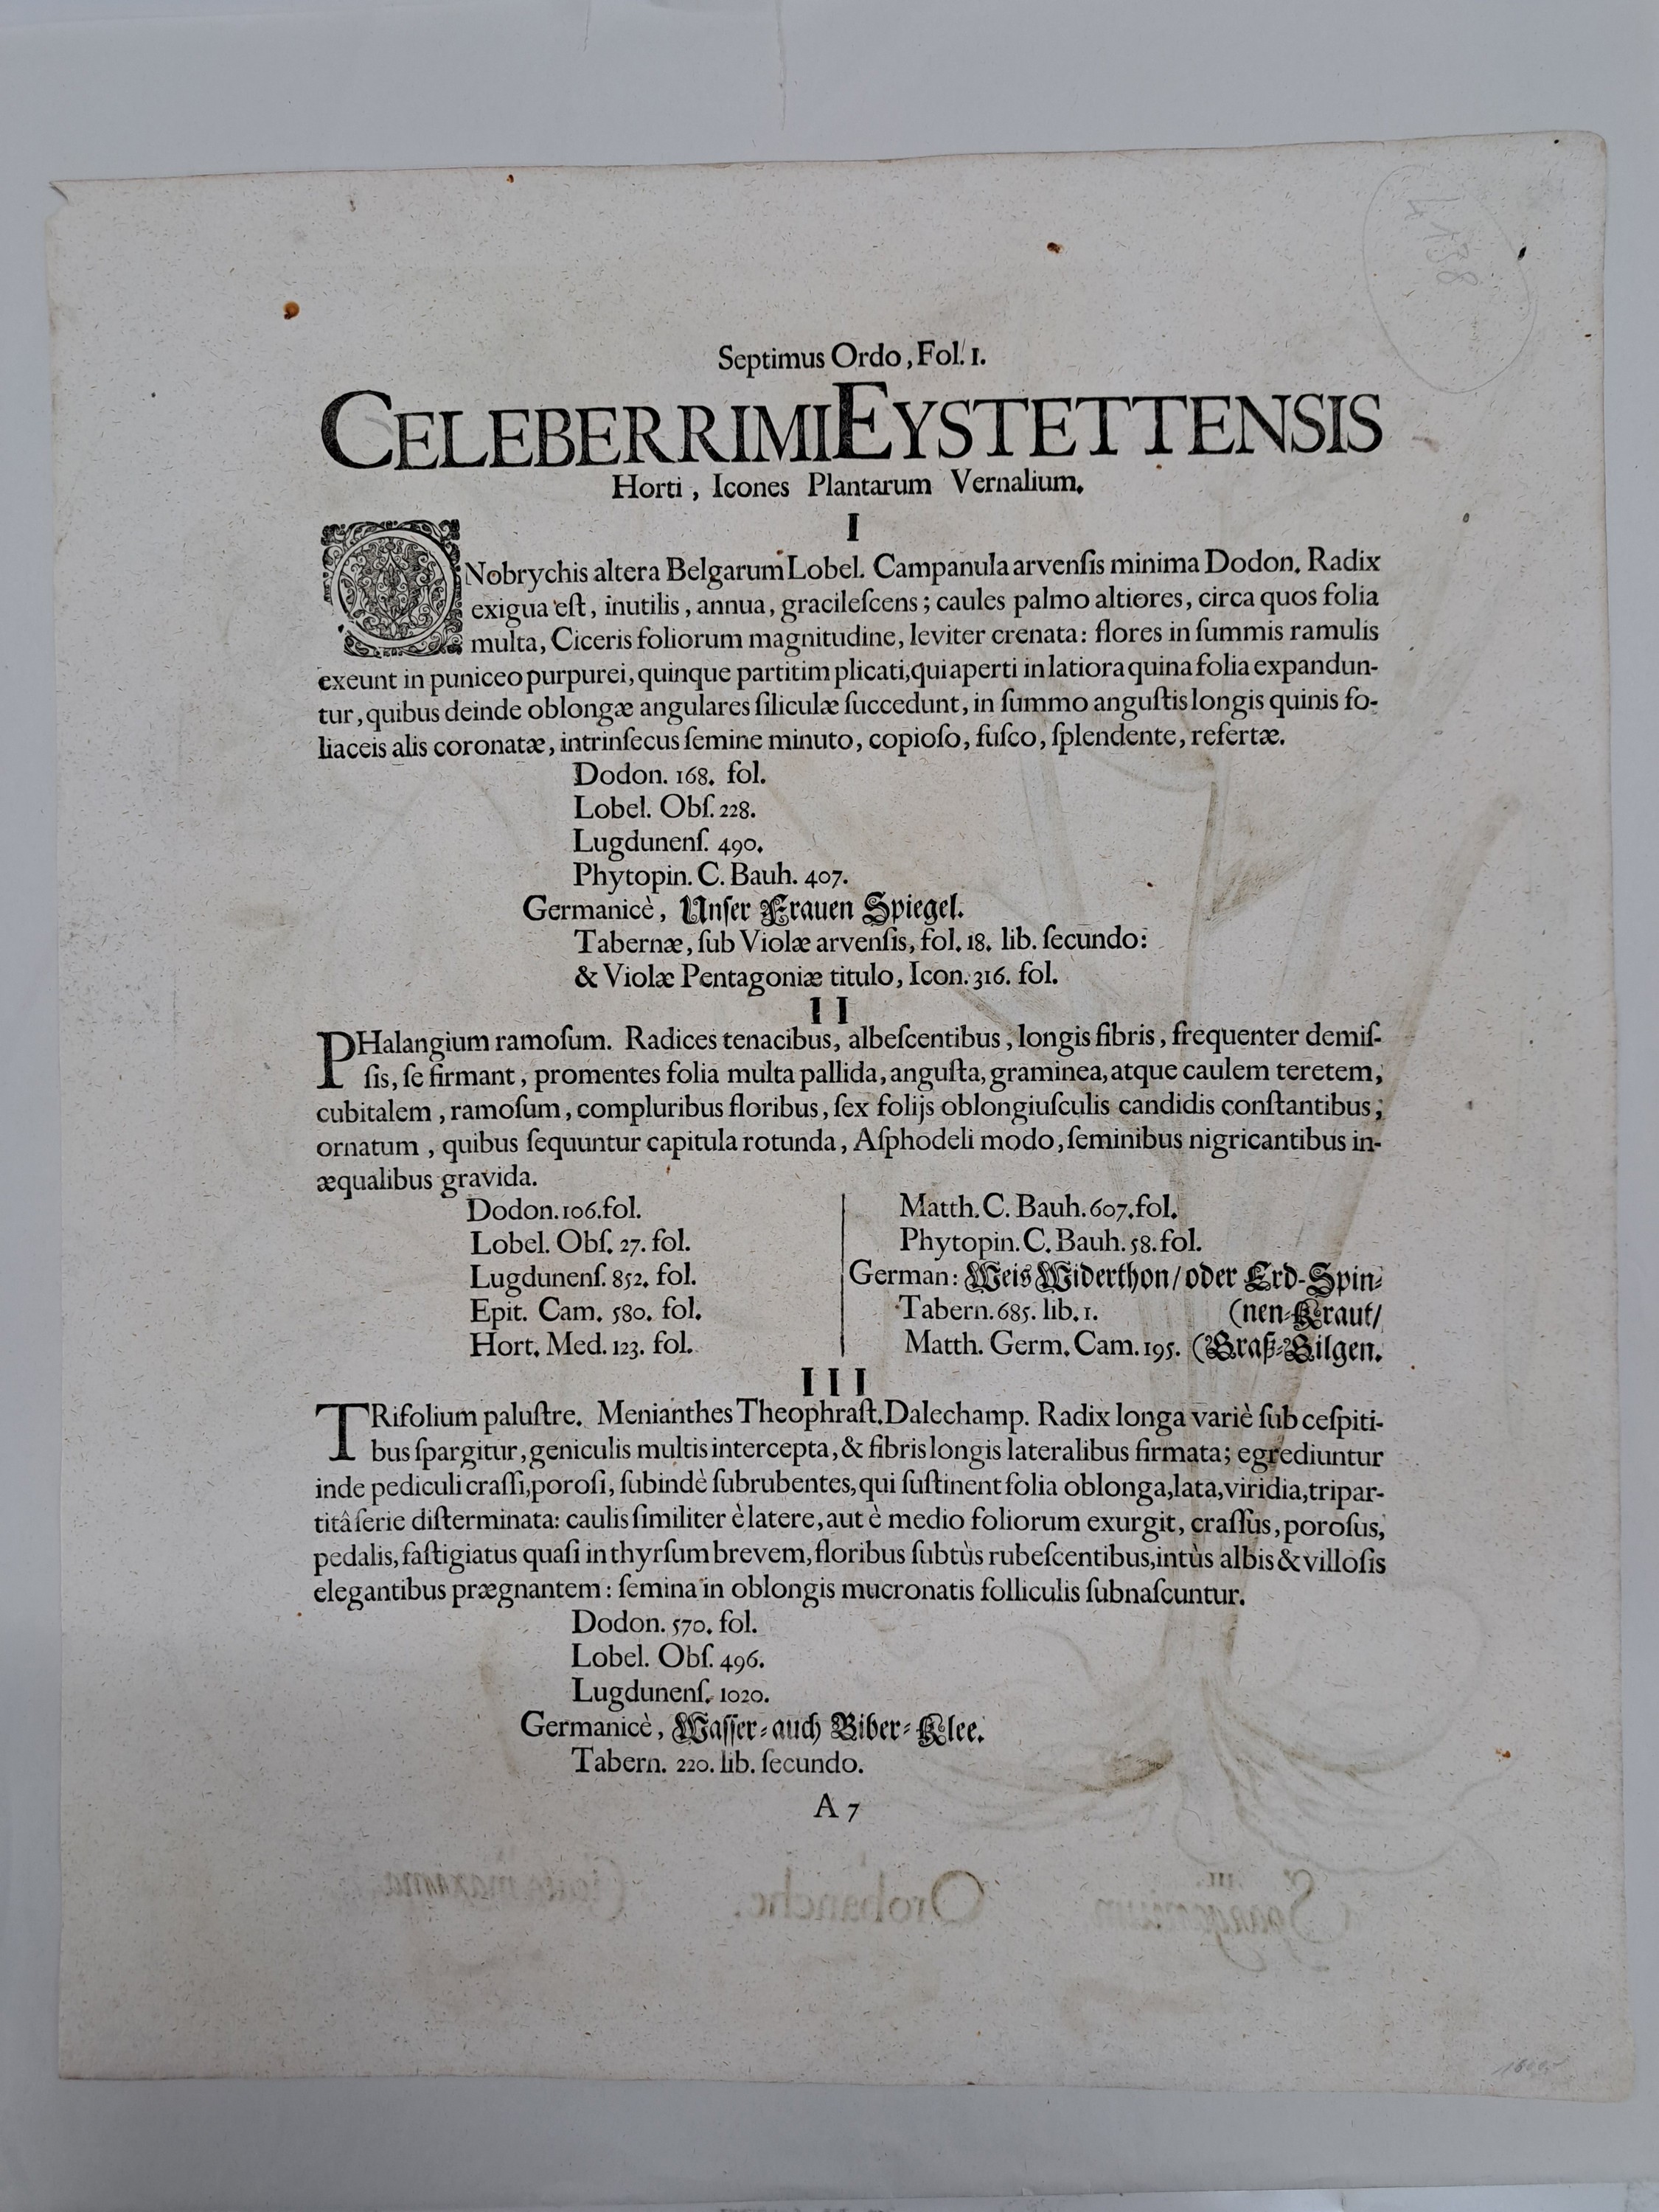 Septimus Ordo, Fol. 1.
CELEBERRIMI EYSTETTENSIS
Horti, Icones Plantarum Vernalium.
I
ONobrychis altera Belgarum Lobel. Campanula arvenſis minima Dodon. Radix
exigua eſt, inutilis, annua, gracileſcens; caules palmo altiores, circa quos folia
multa, Ciceris foliorum magnitudine, leviter crenata: flores in ſummis ramulis
exeunt in puniceo purpurei, quinque partitim plicati, qui aperti in latiora quina folia expandun-
tur, quibus deinde oblongæ angulares ſiliculæ ſuccedunt, in ſummo anguſtis longis quinis fo-
liaceis alis coronatæ, intrinſecus ſemine minuto, copioſo, fuſco, ſplendente, refertæ.
Dodon. 168. fol.
Lobel. Obſ. 228.
Lugdunenſ. 490.
Phytopin. C. Bauh. 407.
Germanicè, Unſer Frauen Spiegel.
Tabernæ, ſub Violæ arvenſis, fol. 18. lib. ſecundo:
& Violæ Pentagoniæ titulo, Icon. 316. fol.
II
PHalangium ramoſum. Radices tenacibus, albeſcentibus, longis fibris, frequenter demiſ-
ſis, ſe firmant, promentes folia multa pallida, anguſta, graminea, atque caulem teretem,
cubitalem, ramoſum, compluribus floribus, ſex folijs oblongiuſculis candidis conſtantibus,
ornatum, quibus ſequuntur capitula rotunda, Aſphodeli modo, ſeminibus nigricantibus in-
æqualibus gravida.
Dodon. 106. fol.
Lobel. Obſ. 27. fol.
Lugdunenſ. 852. fol.
Epit. Cam. 580. fol.
Hort. Med. 123. fol.
Matth. C. Bauh. 607. fol.
Phytopin. C. Bauh. 58. fol.
German: Weis Widerthon/ oder Erd-Spin-
Tabern. 685. lib. 1. (nen-Kraut/
Matth. Germ. Cam. 195. (Graß-Gilgen.
III
TRifolium paluſtre. Menianthes Theophraſt. Dalechamp. Radix longa variè ſub ceſpiti-
bus ſpargitur, geniculis multis intercepta, & fibris longis lateralibus firmata; egrediuntur
inde pediculi craſſi, poroſi, ſubindè ſubrubentes, qui ſuſtinent folia oblonga, lata, viridia, tripar-
titâ ſerie diſterminata: caulis ſimiliter è latere, aut è medio foliorum exurgit, craſſus, poroſus,
pedalis, faſtigiatus quaſi in thyrſum brevem, floribus ſubtùs rubeſcentibus, intùs albis & villoſis
elegantibus prægnantem: ſemina in oblongis mucronatis folliculis ſubnaſcuntur.
Dodon. 570. fol.
Lobel. Obſ. 496.
Lugdunenſ. 1020.
Germanicè, Waſſer- auch Biber-Klee.
Tabern. 220. lib. ſecundo.
A 7
Orobanche.